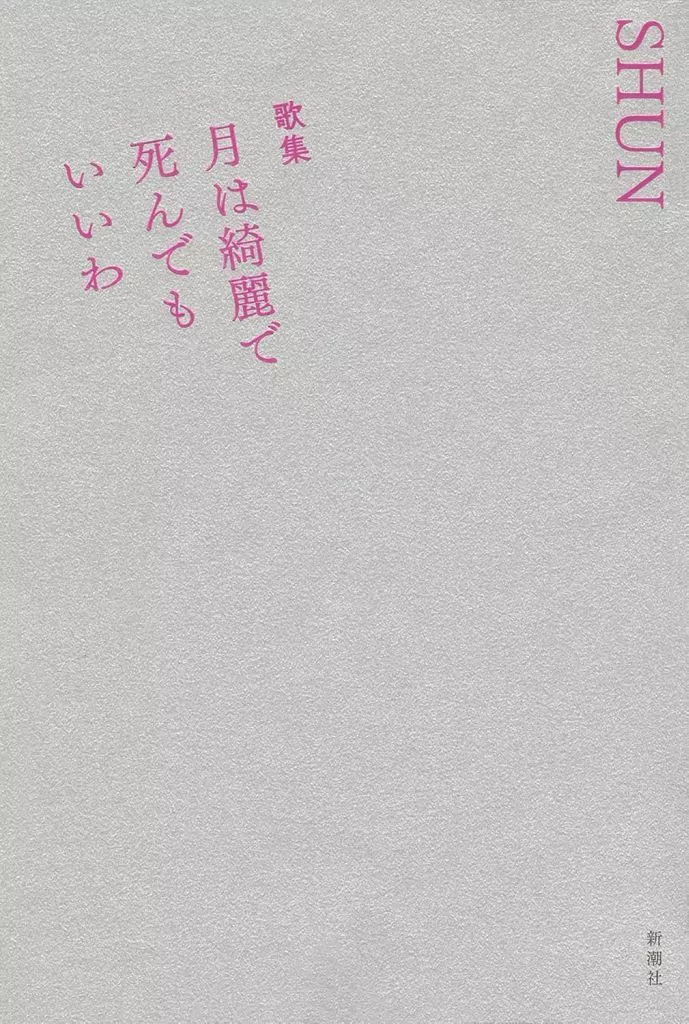 SHUN
歌集
月は綺麗で
死んでも
いいわ
新潮社